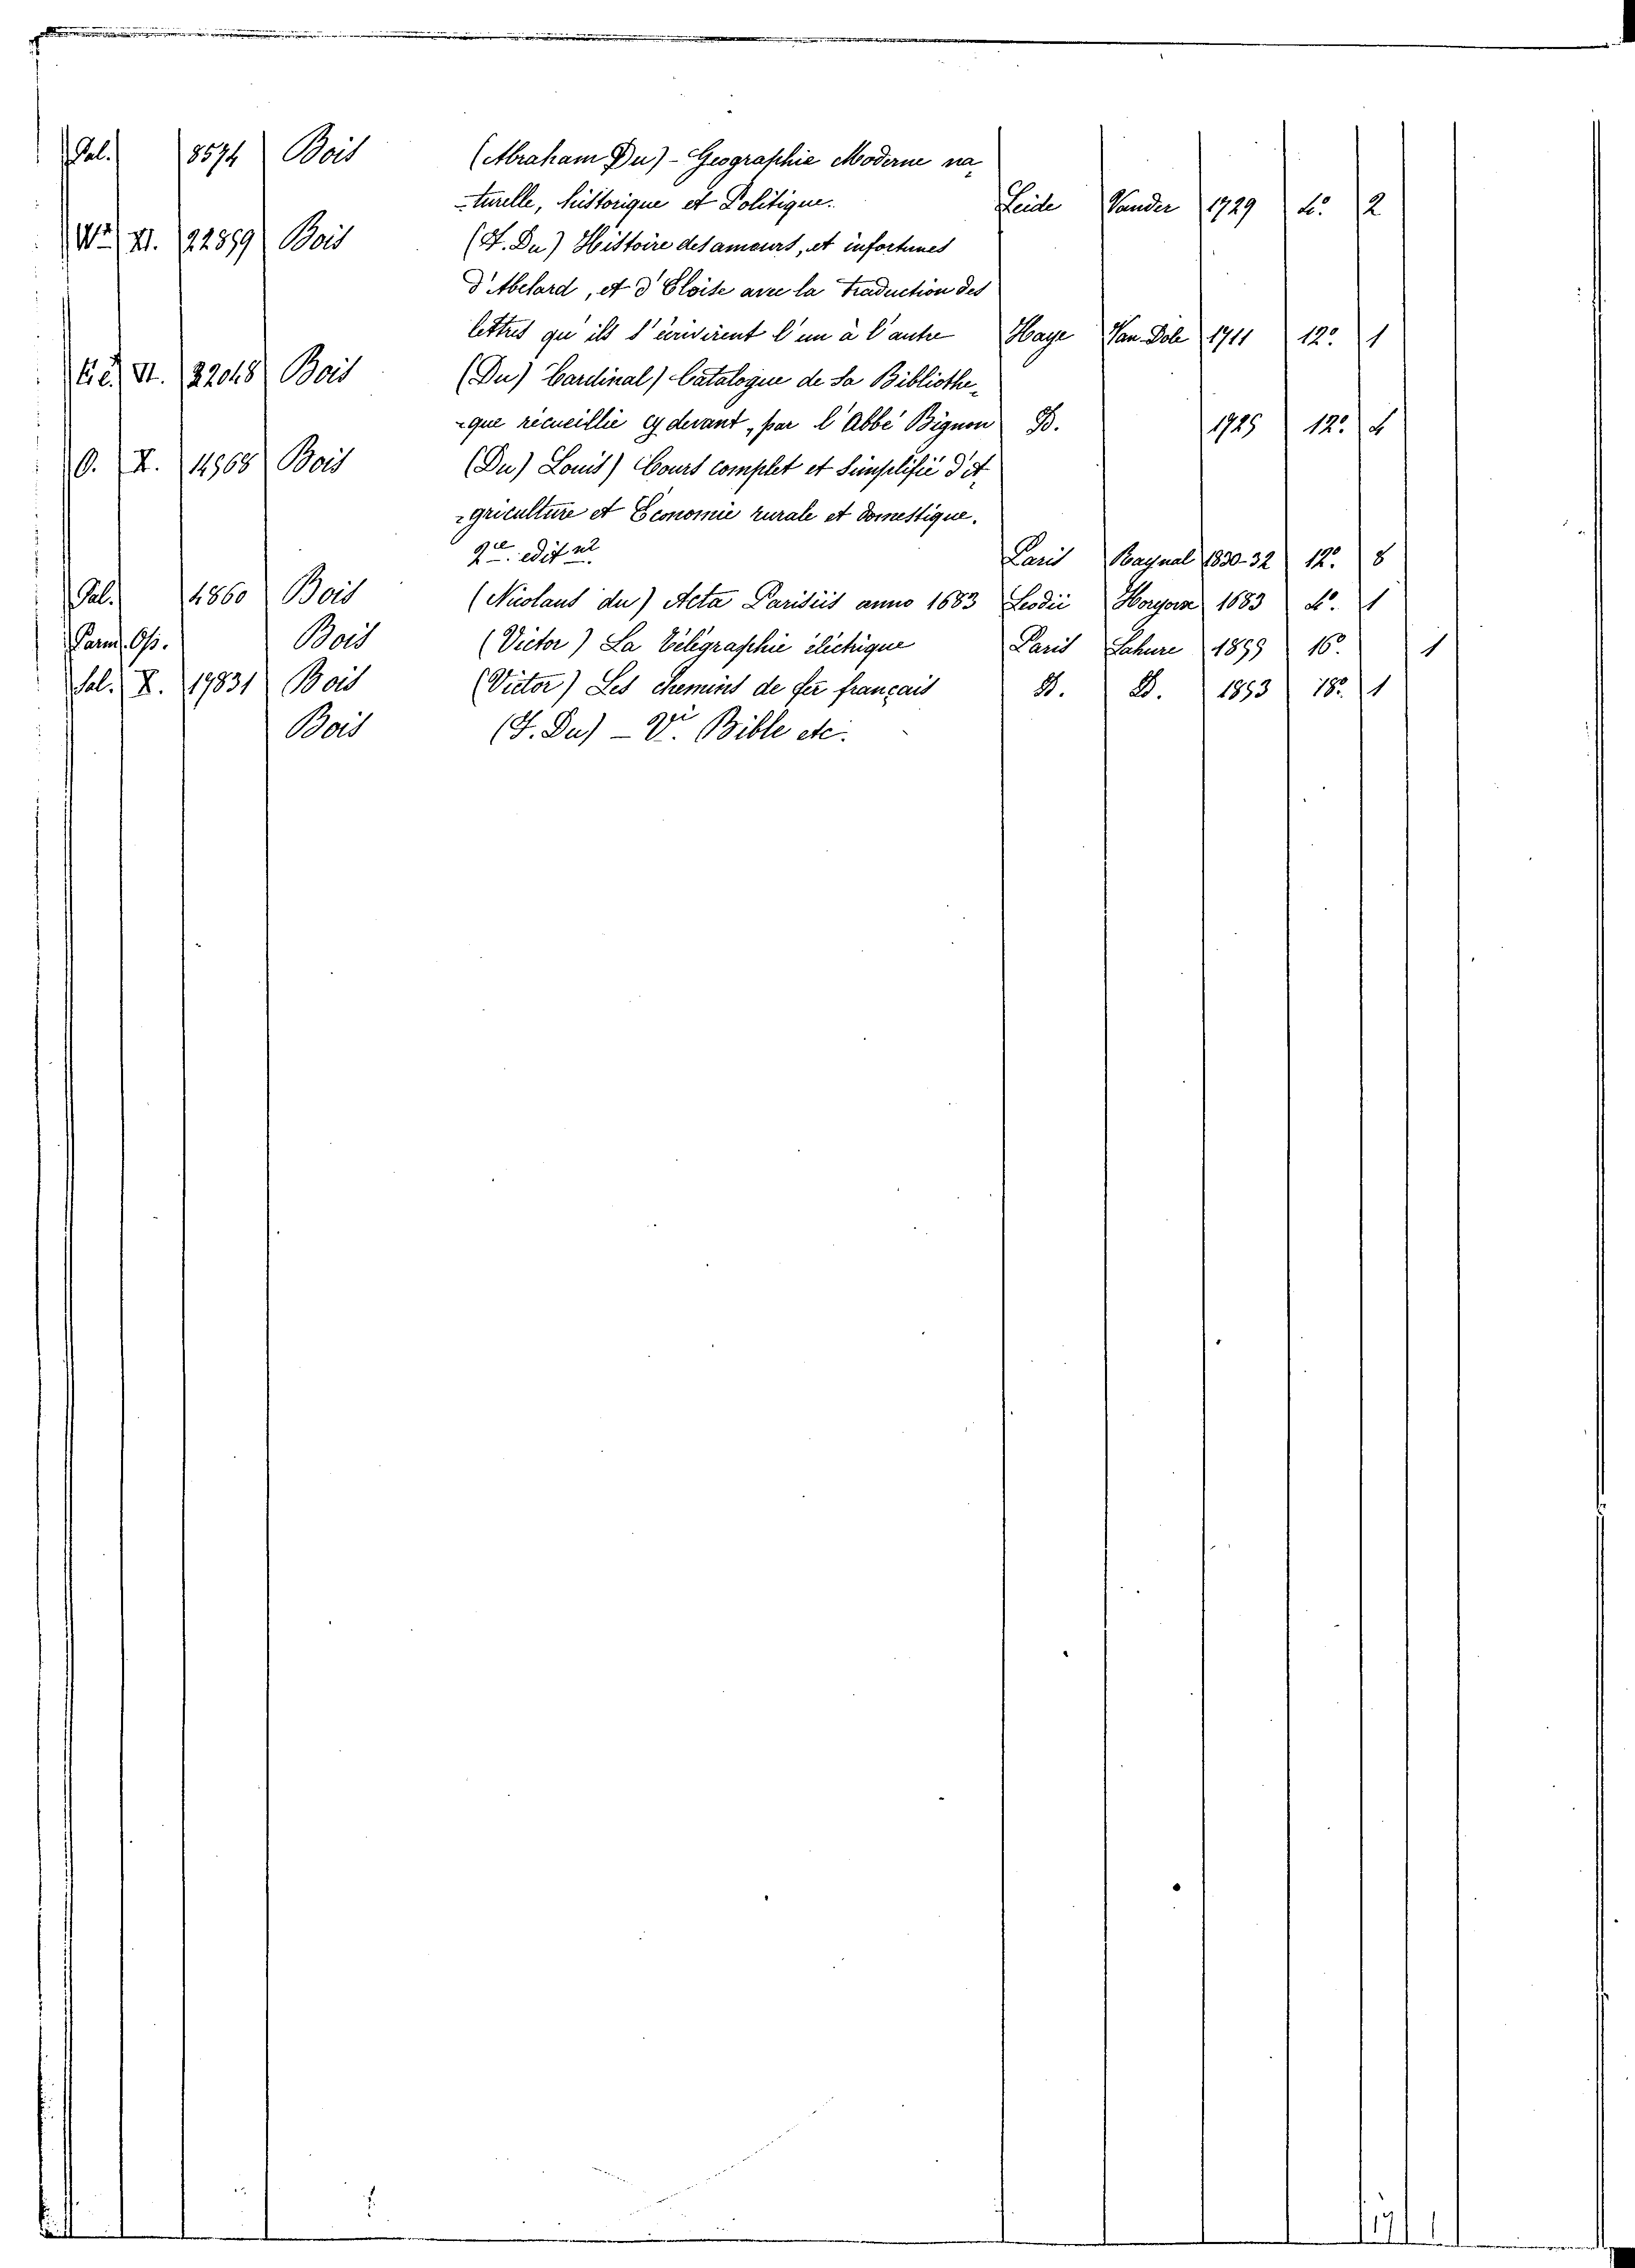 Pal. 8574 Bois (Abraham Du) - Geographie Moderne na
-turelle, historique et Politique. Leide Vander 1729 4.° 2
XI. 22859 Bois (F. Du) Histoire des amours, et infortunes
d'Abelard, et d'Eloise avec la traduction des
lettres qu'ils s'écrivirent l'un à l'autre Haye Van-Dole 1711 12.° 1
VI. 22048 Bois (Du) Cardinal) Catalogue de sa Bibliothe
-que récueillie cy devant, par l'Abbé Bignon D. 1725 12.° 4
O. X. 14968 Bois (Du) Louis) Cours complet et simplifié d'A
-griculture et Économie rurale et domestique.
2.e edit.n Paris Raynal 1830-32 12.° 8
Pal. 4860 Bois (Nicolaus du) Acta Parisiis anno 1683 Leodii 1683 4.° 1
Parm. Op. Bois (Victor) La Télégraphie électrique Paris Lahure 1855 16.° 1
Sal. X. 19831 Bois (Victor) Les chemins de fer français D. D. 1853 18.° 1
Bois (F. Du) - V.i Bible etc.
17 1